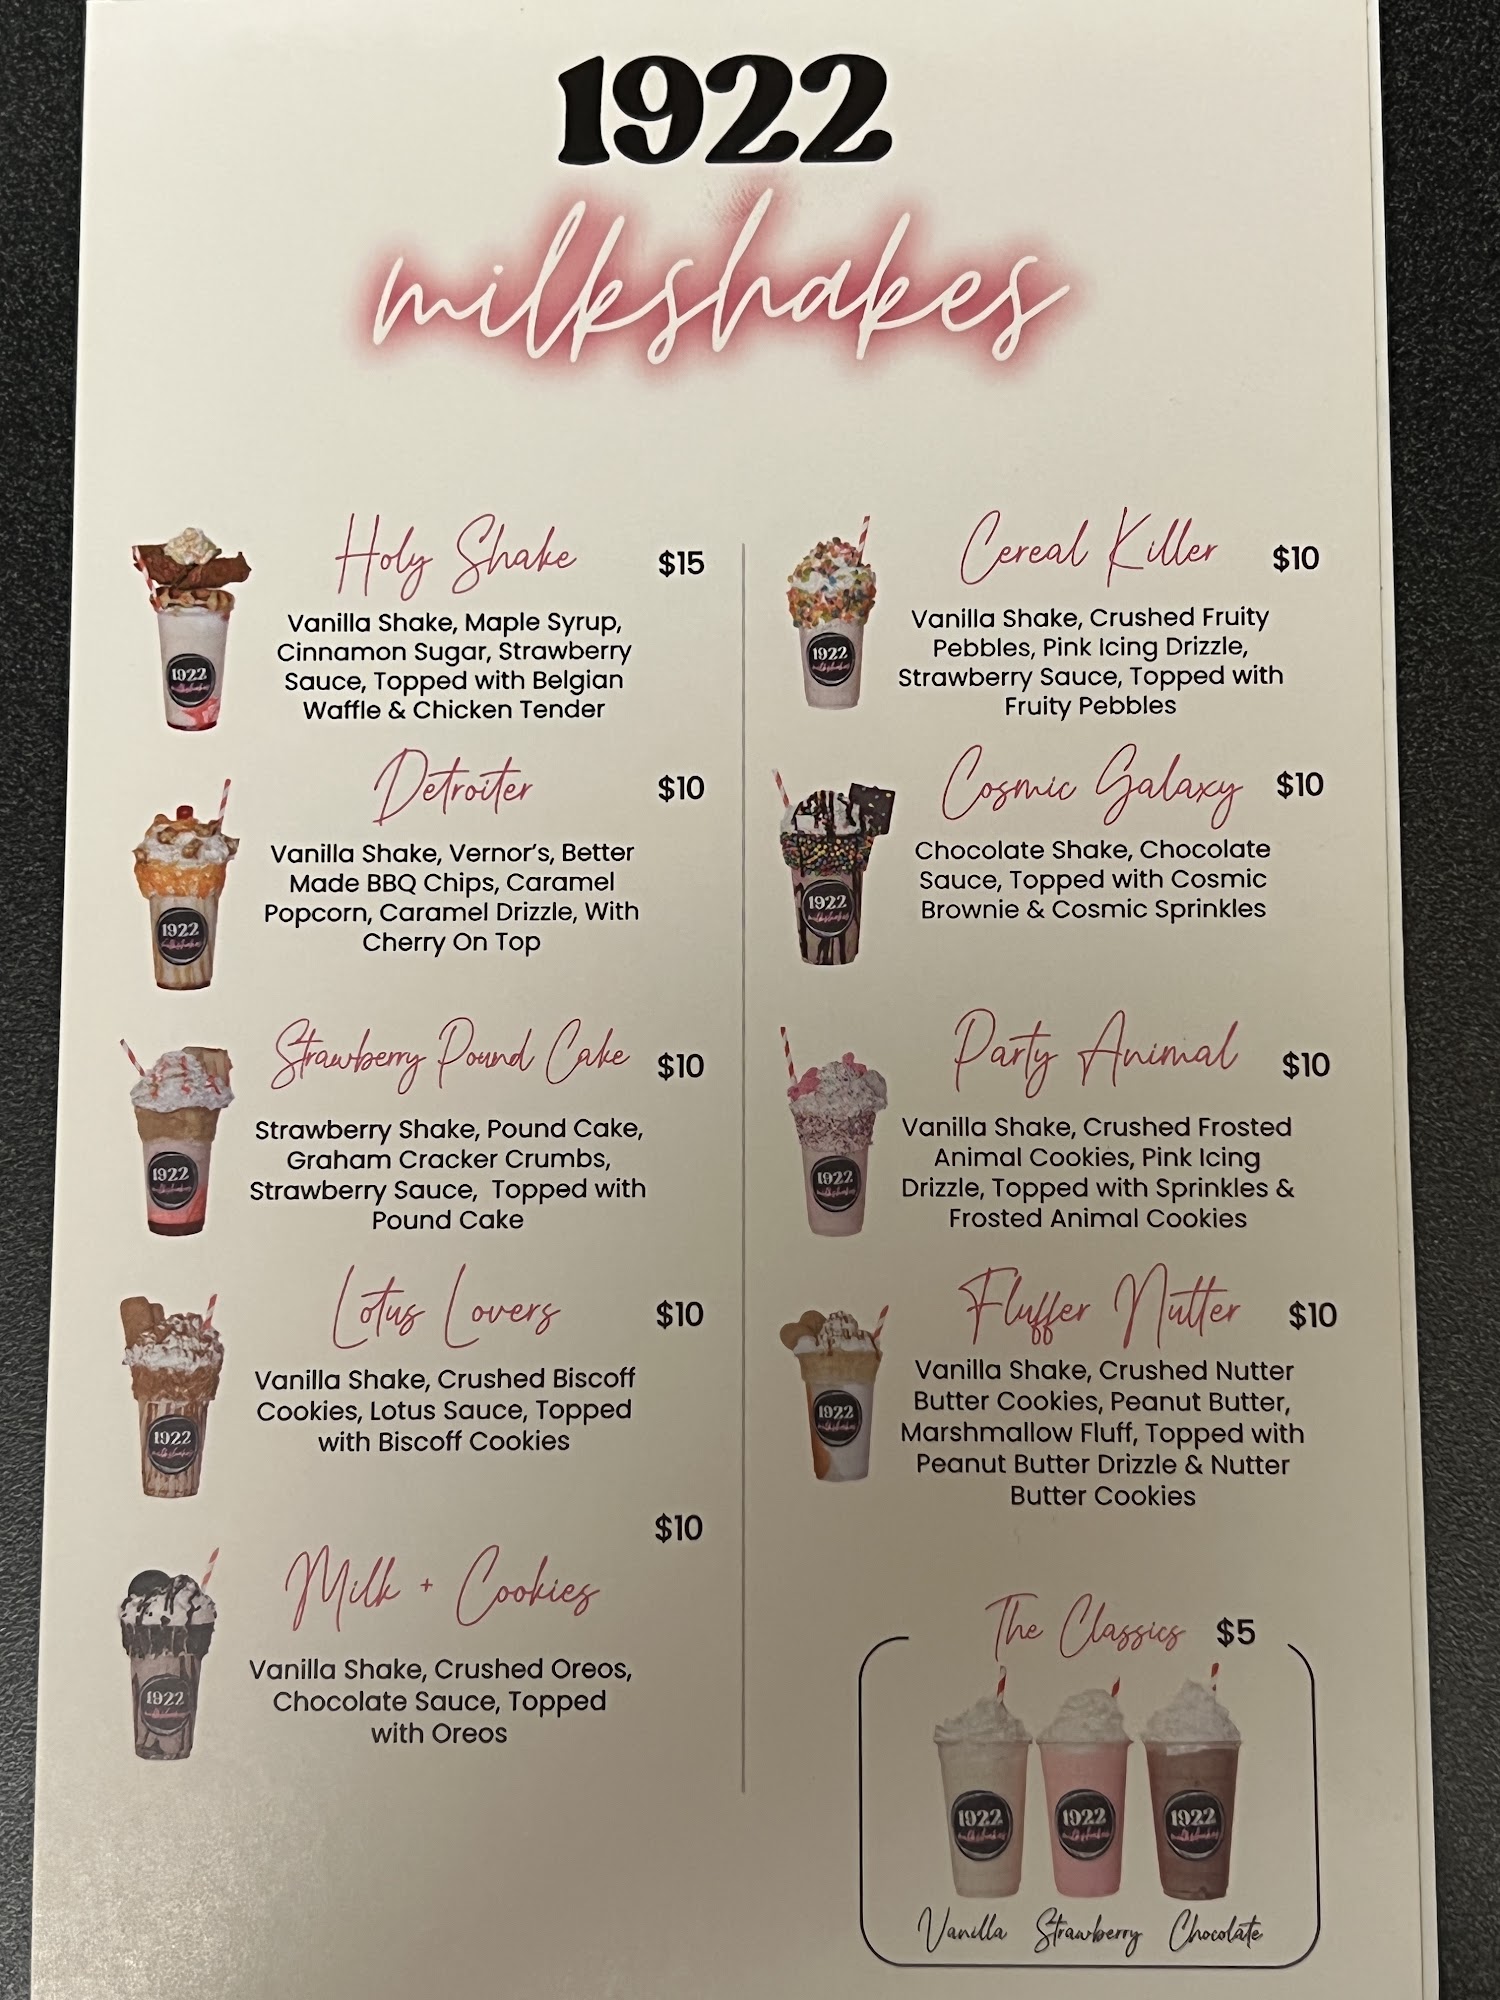 1922
milkshakes
Holy Shake $15
Vanilla Shake, Maple Syrup,
Cinnamon Sugar, Strawberry
Sauce, Topped with Belgian
Waffle & Chicken Tender
1922
milkshakes
Detroiter $10
Vanilla Shake, Vernor's, Better
Made BBQ Chips, Caramel
Popcorn, Caramel Drizzle, With
Cherry On Top
1922
milkshakes
Strawberry Pound Cake $10
Strawberry Shake, Pound Cake,
Graham Cracker Crumbs,
Strawberry Sauce, Topped with
Pound Cake
1922
milkshakes
Lotus Lovers $10
Vanilla Shake, Crushed Biscoff
Cookies, Lotus Sauce, Topped
with Biscoff Cookies
1922
milkshakes
$10
Milk + Cookies
Vanilla Shake, Crushed Oreos,
Chocolate Sauce, Topped
with Oreos
1922
milkshakes
Cereal Killer $10
Vanilla Shake, Crushed Fruity
Pebbles, Pink Icing Drizzle,
Strawberry Sauce, Topped with
Fruity Pebbles
1922
milkshakes
Cosmic Galaxy $10
Chocolate Shake, Chocolate
Sauce, Topped with Cosmic
Brownie & Cosmic Sprinkles
1922
milkshakes
Party Animal $10
Vanilla Shake, Crushed Frosted
Animal Cookies, Pink Icing
Drizzle, Topped with Sprinkles &
Frosted Animal Cookies
1922
milkshakes
Fluffer Nutter $10
Vanilla Shake, Crushed Nutter
Butter Cookies, Peanut Butter,
Marshmallow Fluff, Topped with
Peanut Butter Drizzle & Nutter
Butter Cookies
1922
milkshakes
The Classics $5
1922 1922 1922
milkshakes milkshakes milkshakes
Vanilla Strawberry Chocolate